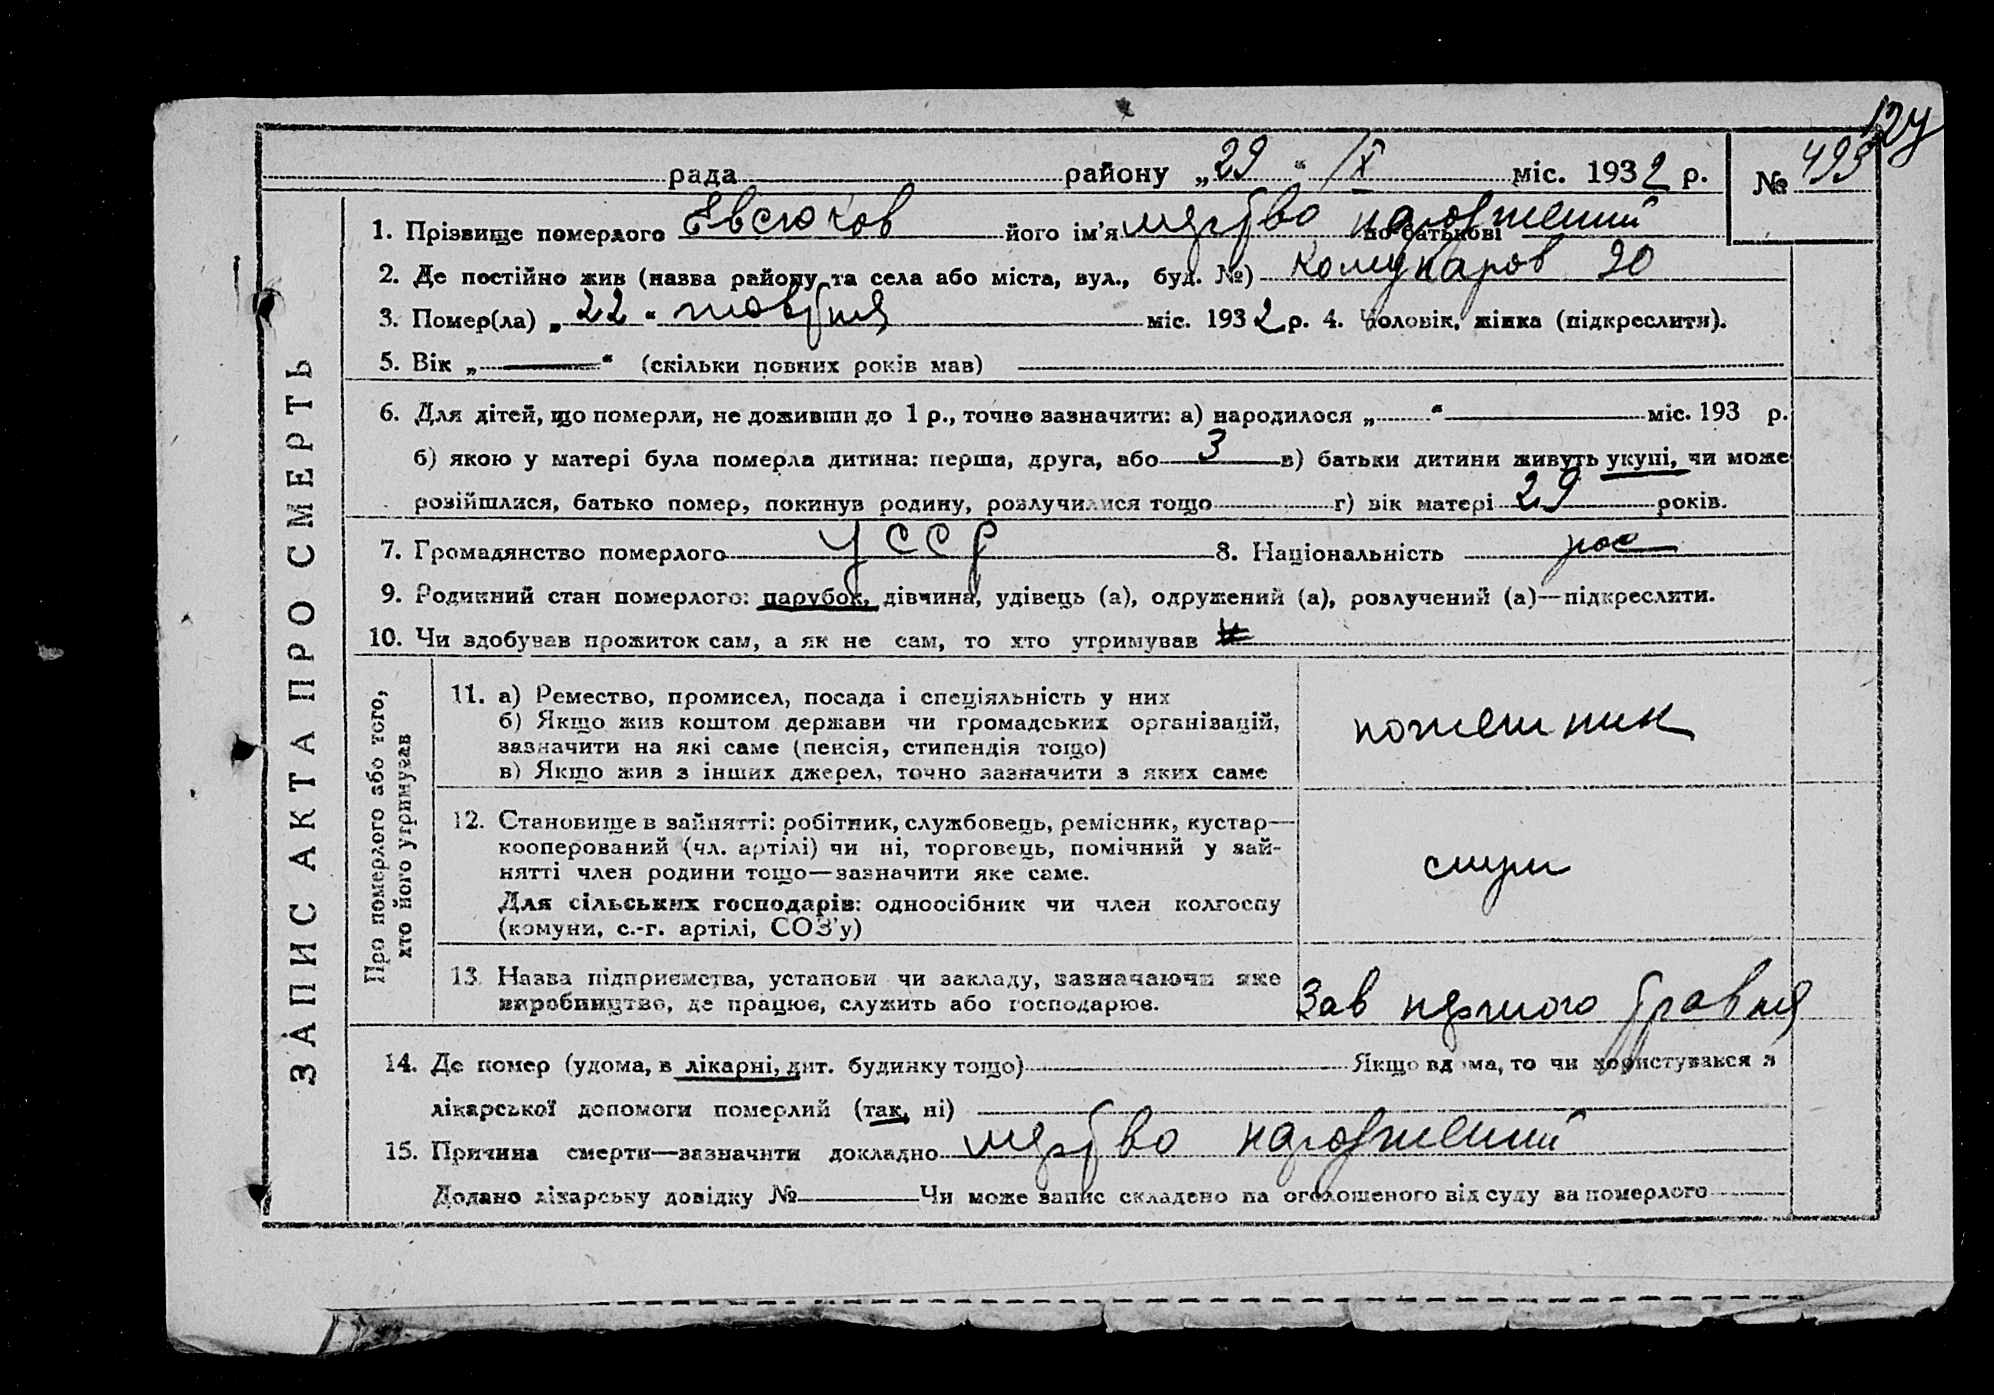 127
рада района „29“ IX міс. 1932 р. № 493
1. Прізвище померлого Евсюков його ім'я мертво народжений по батькові
2. Де постійно жив (назва району та села або міста, вул., буд. №) Комунаров 20
3. Помер(ла) „22“ жовтня міс. 1932 р. 4. Чоловік, жінка (підкреслити).
5. Вік „—“ (скільки повних років мав)
6. Для дітей, що померли, не доживши до 1 р., точно зазначити: а) народилося „ “ міс. 193 р.
б) якою у матері була померла дитина: перша, друга, або 3 в) батьки дитини живуть укупі, чи може
розійшлися, батько помер, покинув родину, розлучилися тощо г) вік матері 29 років.
7. Громадянство померлого УССР 8. Національність рос
9. Родинний стан померлого: парубок, дівчина, удівець (а), одружений (а), розлучений (а)—підкреслити.
10. Чи здобував прожиток сам, а як не сам, то хто утримував
ЗАПИС АКТА ПРО СМЕРТЬ
Про померлого або того,
хто його утримував
11. а) Ремество, промисел, посада і спеціяльність у них
б) Якщо жив коштом держави чи громадських організацій,
зазначити на які саме (пенсія, стипендія тощо)
в) Якщо жив з інших джерел, точно зазначити з яких саме
12. Становище в зайнятті: робітник, службовець, ремісник, кустар—
кооперований (чл. артілі) чи ні, торговець, помічний у зай-
нятті член родини тощо—зазначити яке саме.
Для сільських господарів: одноосібник чи член колгоспу
(комуни, с.-г. артілі, СОЗ'у)
13. Назва підприємства, установи чи закладу, зазначаючи яке
виробництво, де працює, служить або господарює.
Зав першого травня
14. Де помер (удома, в лікарні, дит. будинку тощо) Якщо вдома, то чи користувався з
лікарської допомоги померлий (так, ні)
15. Причина смерти—зазначити докладно мертво народжений
Додано лікарську довідку № Чи може запис складено на оголошеного від суду за померлого